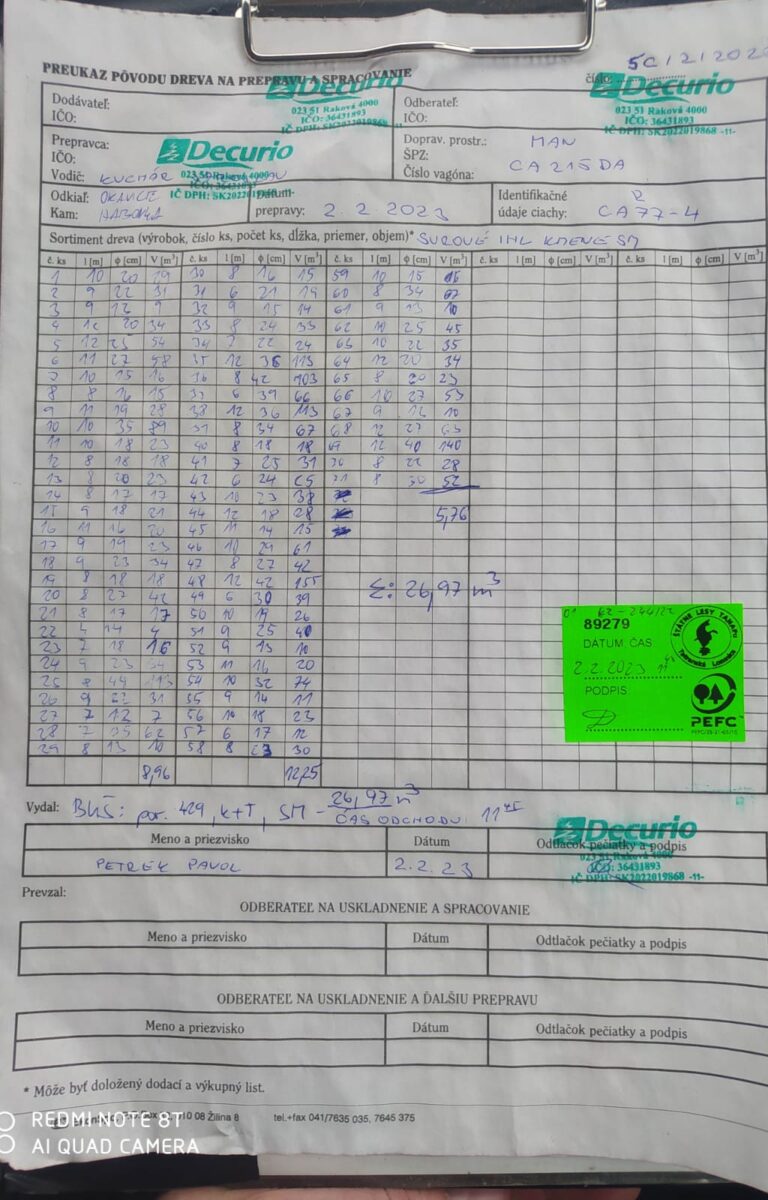 5C/2/202
PREUKAZ PÔVODU DREVA NA PREPRAVU A SPRACOVANIE
číslo:
Decurio
023 51 Raková 4000
IČO: 36431893
IČ DPH: SK2022019868 -11-
Dodávateľ:
IČO:
Odberateľ:
IČO:
Decurio
023 51 Raková 4000
IČO: 36431893
IČ DPH: SK2022019868 -11-
Prepravca:
IČO:
Vodič: KUCHÁR
Doprav. prostr.: MAN
ŠPZ:
Číslo vagóna: CA 215 DA
Odkiaľ:
Kam:
Dátum
prepravy: 2.2.2023
Identifikačné
údaje ciachy: CA 77-4
Sortiment dreva (výrobok, číslo ks, počet ks, dĺžka, priemer, objem)* SUROVÉ IHL KMENE SM
č. ks l [m] ϕ [cm] V [m³] č. ks l [m] ϕ [cm] V [m³] č. ks l [m] ϕ [cm] V [m³] č. ks l [m] ϕ [cm] V [m³] č. ks l [m] ϕ [cm] V [m³]
1 10 20 30 8 16 15 59 10 15 16
2 9 22 31 31 6 21 19 60 8 34 67
3 9 12 9 32 9 15 14 61 9 13 10
4 20 34 33 8 24 33 62 10 25 45
5 12 25 54 34 7 22 24 10 22 35
6 11 27 58 35 12 36 113 64 12 20 34
7 10 15 16 36 8 42 103 65 8 20 23
8 8 16 15 6 39 66 66 10 27 53
9 11 19 28 38 12 36 113 67 9 10
10 10 35 89 8 34 67 68 12 27
11 10 18 23 40 8 18 18 12 40 140
12 8 18 18 41 7 25 31 8 22 28
13 8 20 23 42 6 24 8 30 52
14 8 17 17 43 10 23 38
15 9 18 21 44 12 18 28 5,76
16 11 16 20 45 11 14 15
17 9 19 23 46 10 29 61
18 9 23 34 47 8 27 42
19 8 18 18 48 12 42 155 Σ: 26,97 m³
20 8 27 42 49 6 30 39
21 8 17 17 50 10 19 26
22 4 14 4 51 9 25 40
23 7 18 16 52 9 13 10
24 9 23 53 11 16 20
25 8 44 113 54 10 32 74
26 9 22 31 55 9 14 11
27 7 12 7 56 10 18 23
28 7 35 62 57 6 17 12
29 8 13 10 58 8 23 30
8,96 12,25
62-244/22
89279
DÁTUM, ČAS
2.2.2023 11 45
PODPIS
ŠTÁTNE LESY TANAPU
Tatranská Lomnica
PEFC
Vydal: por. 429, k+T, SM - 26,97 m³
ČAS ODCHODU: 11 45
Meno a priezvisko Dátum Odtlačok pečiatky a podpis
PETREK PAVOL 2.2.23
Decurio
023 51 Raková 4000
IČO: 36431893
IČ DPH: SK2022019868 -11-
Prevzal:
ODBERATEĽ NA USKLADNENIE A SPRACOVANIE
Meno a priezvisko Dátum Odtlačok pečiatky a podpis
ODBERATEĽ NA USKLADNENIE A ĎALŠIU PREPRAVU
Meno a priezvisko Dátum Odtlačok pečiatky a podpis
* Môže byť doložený dodací a výkupný list.
10 08 Žilina 8 tel.+fax 041/7635 035, 7645 375
REDMI NOTE 8T
AI QUAD CAMERA